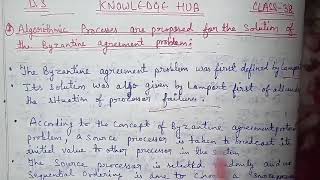 D.S KNOWLEDGE HUB CLASS-38
Algorithmic Processes are proposed for the Solution of
the Byzantine agreement problem:
The Byzantine agreement problem was first defined by Lamport
Its solution was also given by Lamport first of all under
the situation of processor failure.
According to the concept of Byzantine agreement
problem, a source processor is taken to broadcast its
initial value to other processor in the
The Source processor is selected and
Sequential Ordering is done to